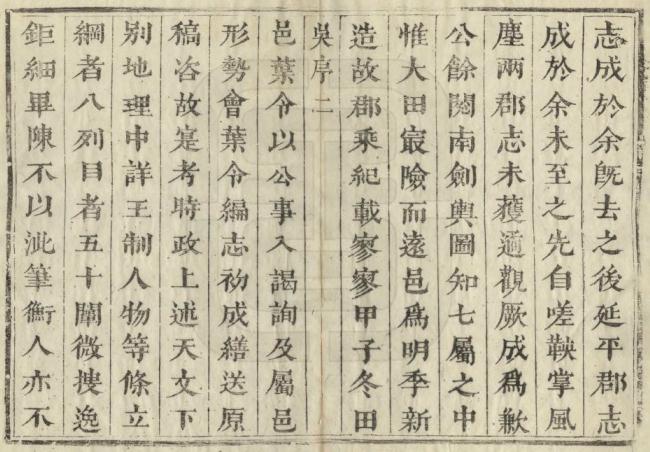 志成於余旣去之後延平郡志
成於余未至之先自嗟鞅掌風
塵兩郡志未獲遍觀厥成爲歉
公餘閱南劍輿圖知七屬之中
惟大田最險而遠邑爲明季新
造故郡乘紀載寥寥甲子冬田
吳序二
邑葉令以公事入謁詢及屬邑
形勢會葉令編志初成繕送原
稿咨故寔考時政上述天文下
別地理中詳王制人物等條立
綱者八列目者五十闡微搜逸
鉅細畢陳不以泚筆衡人亦不